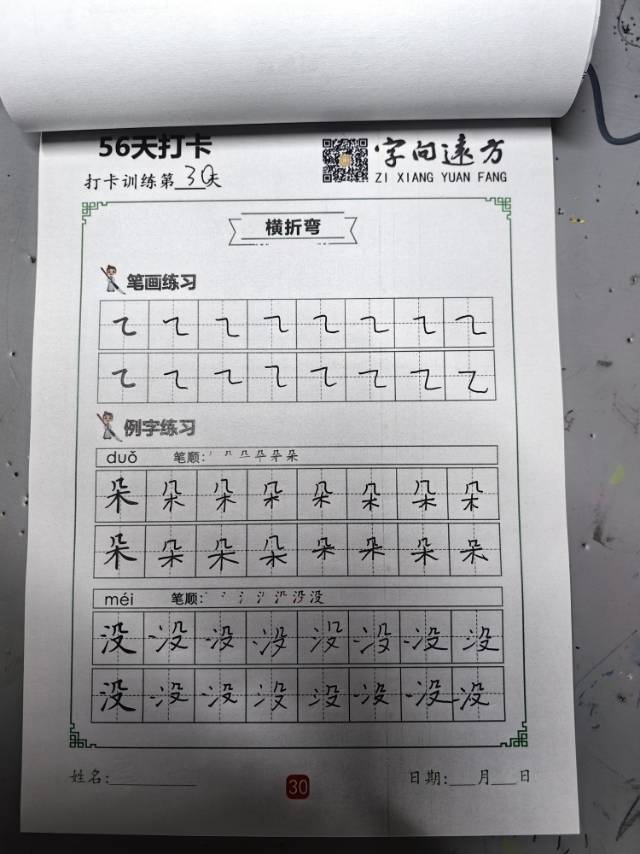 56天打卡
字向远方
打卡训练第30天
ZI XIANG YUAN FANG
横折弯
笔画练习
㇍ ㇍ ㇍ ㇍ ㇍ ㇍ ㇍ ㇍
㇍ ㇍ ㇍ ㇍ ㇍ ㇍ ㇍ ㇍
例字练习
duǒ 笔顺:
朵 朵 朵 朵 朵 朵 朵 朵
朵 朵 朵 朵 朵 朵 朵 朵
méi 笔顺:
没 没 没 没 没 没 没 没
没 没 没 没 没 没 没 没
姓名: 30 日期: 月 日